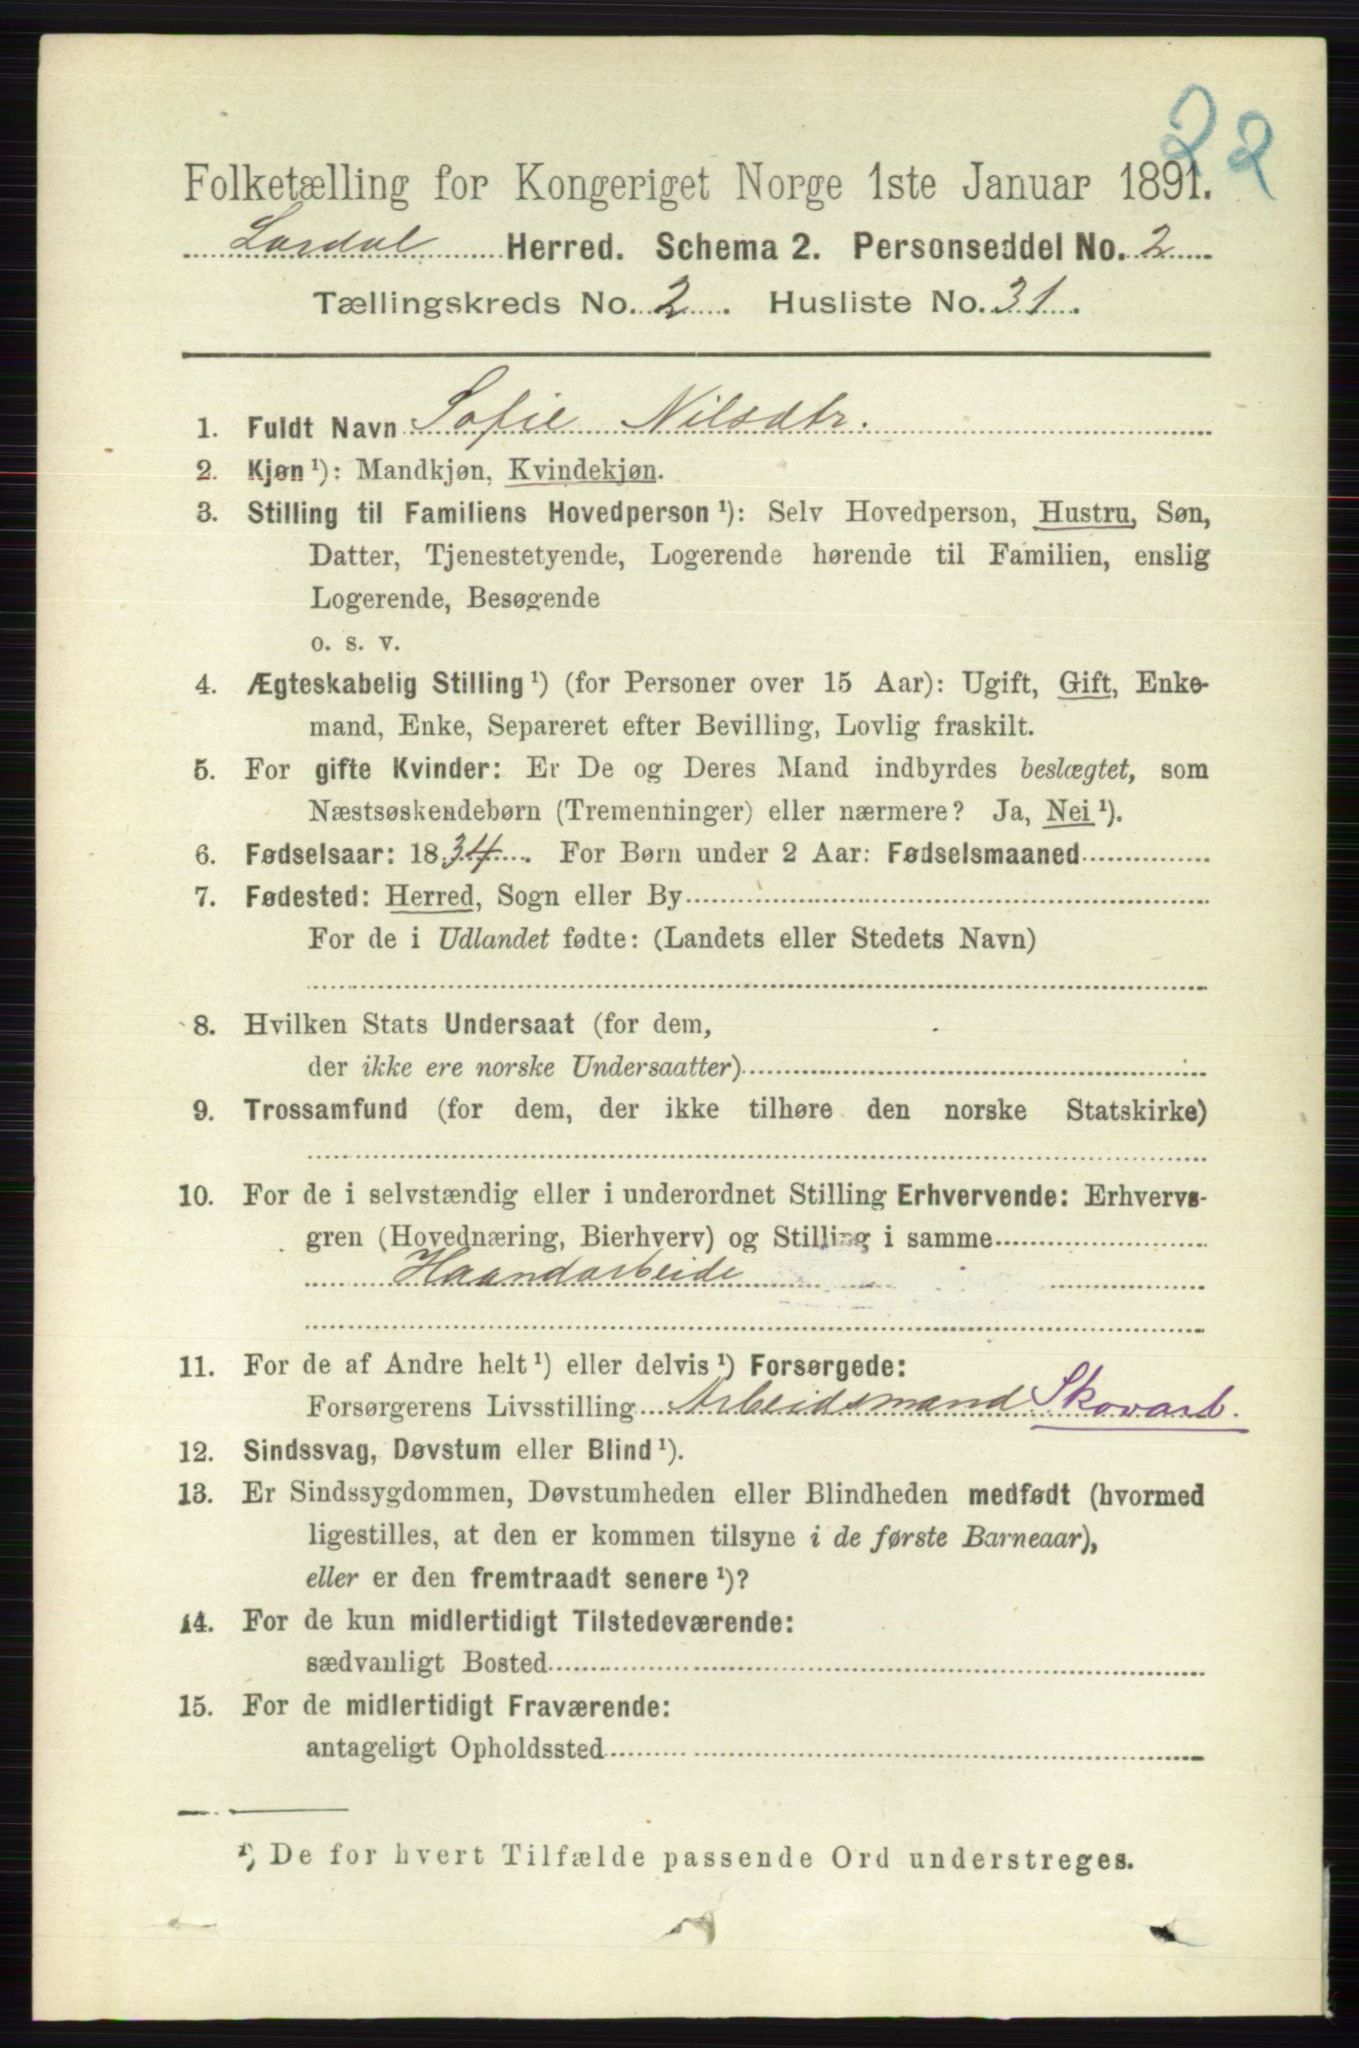 22
Folketælling for Kongeriget Norge 1ste Januar 1891.
Lardal Herred. Schema 2. Personseddel No. 2
Tællingskreds No. 2. Husliste No. 31.
1. Fuldt Navn Sofie Nilsdtr.
2. Kjøn ¹): Mandkjøn, Kvindekjøn.
3. Stilling til Familiens Hovedperson ¹): Selv Hovedperson, Hustru, Søn,
Datter, Tjenestetyende, Logerende hørende til Familien, enslig
Logerende, Besøgende
o. s. v.
4. Ægteskabelig Stilling ¹) (for Personer over 15 Aar): Ugift, Gift, Enke-
mand, Enke, Separeret efter Bevilling, Lovlig fraskilt.
5. For gifte Kvinder: Er De og Deres Mand indbyrdes beslægtet, som
Næstsøskendebørn (Tremenninger) eller nærmere? Ja, Nei ¹).
6. Fødselsaar: 1834. For Børn under 2 Aar: Fødselsmaaned
7. Fødested: Herred, Sogn eller By
For de i Udlandet fødte: (Landets eller Stedets Navn)
8. Hvilken Stats Undersaat (for dem,
der ikke ere norske Undersaatter)
9. Trossamfund (for dem, der ikke tilhøre den norske Statskirke)
10. For de i selvstændig eller i underordnet Stilling Erhvervende: Erhvervs-
gren (Hovednæring, Bierhverv) og Stilling i samme
Haandarbeide
11. For de af Andre helt ¹) eller delvis ¹) Forsørgede:
Forsørgerens Livsstilling Arbeidsmand Skovarb.
12. Sindssvag, Døvstum eller Blind ¹).
13. Er Sindssygdommen, Døvstumheden eller Blindheden medfødt (hvormed
ligestilles, at den er kommen tilsyne i de første Barneaar),
eller er den fremtraadt senere ¹)?
14. For de kun midlertidigt Tilstedeværende:
sædvanligt Bosted
15. For de midlertidigt Fraværende:
antageligt Opholdssted
¹) De for hvert Tilfælde passende Ord understreges.